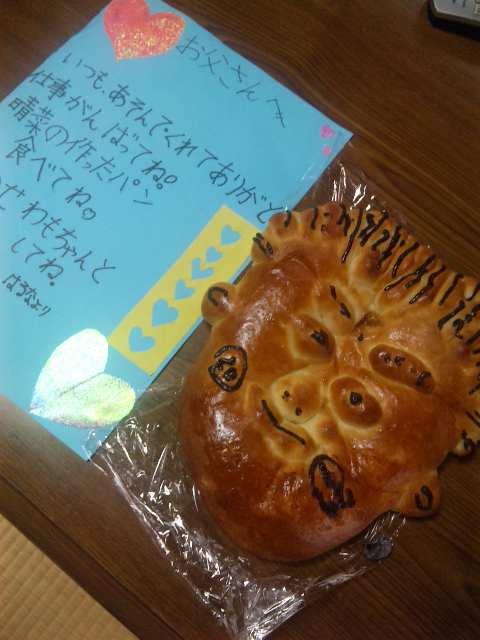 お父さんへ
いつも、あそんでくれてありがとう
仕事がんばってね。
晴菜の作ったパン
食べてね。
せわもちゃんと
してね。
はるなより